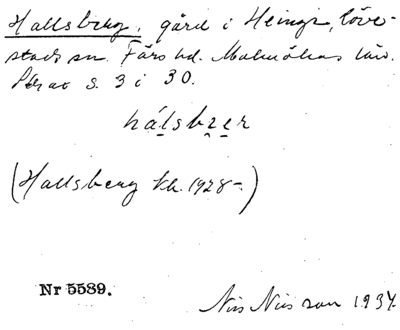 Hallsberg, gård i Heinge, Löve-
stads sn. Färs hd. Malmöhus län.
s. 3 i 30.
hálsbrer
(Hallsberg kk. 1928-.)
Nr 5589.
Nils Nilsson 1934.